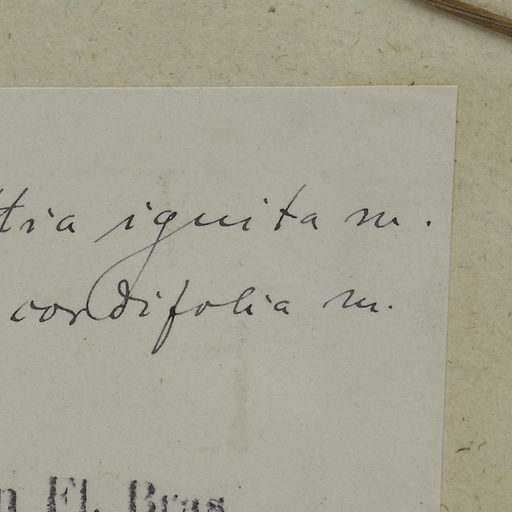 ttia ignita m.
cordifolia m.
n Fl. Bras